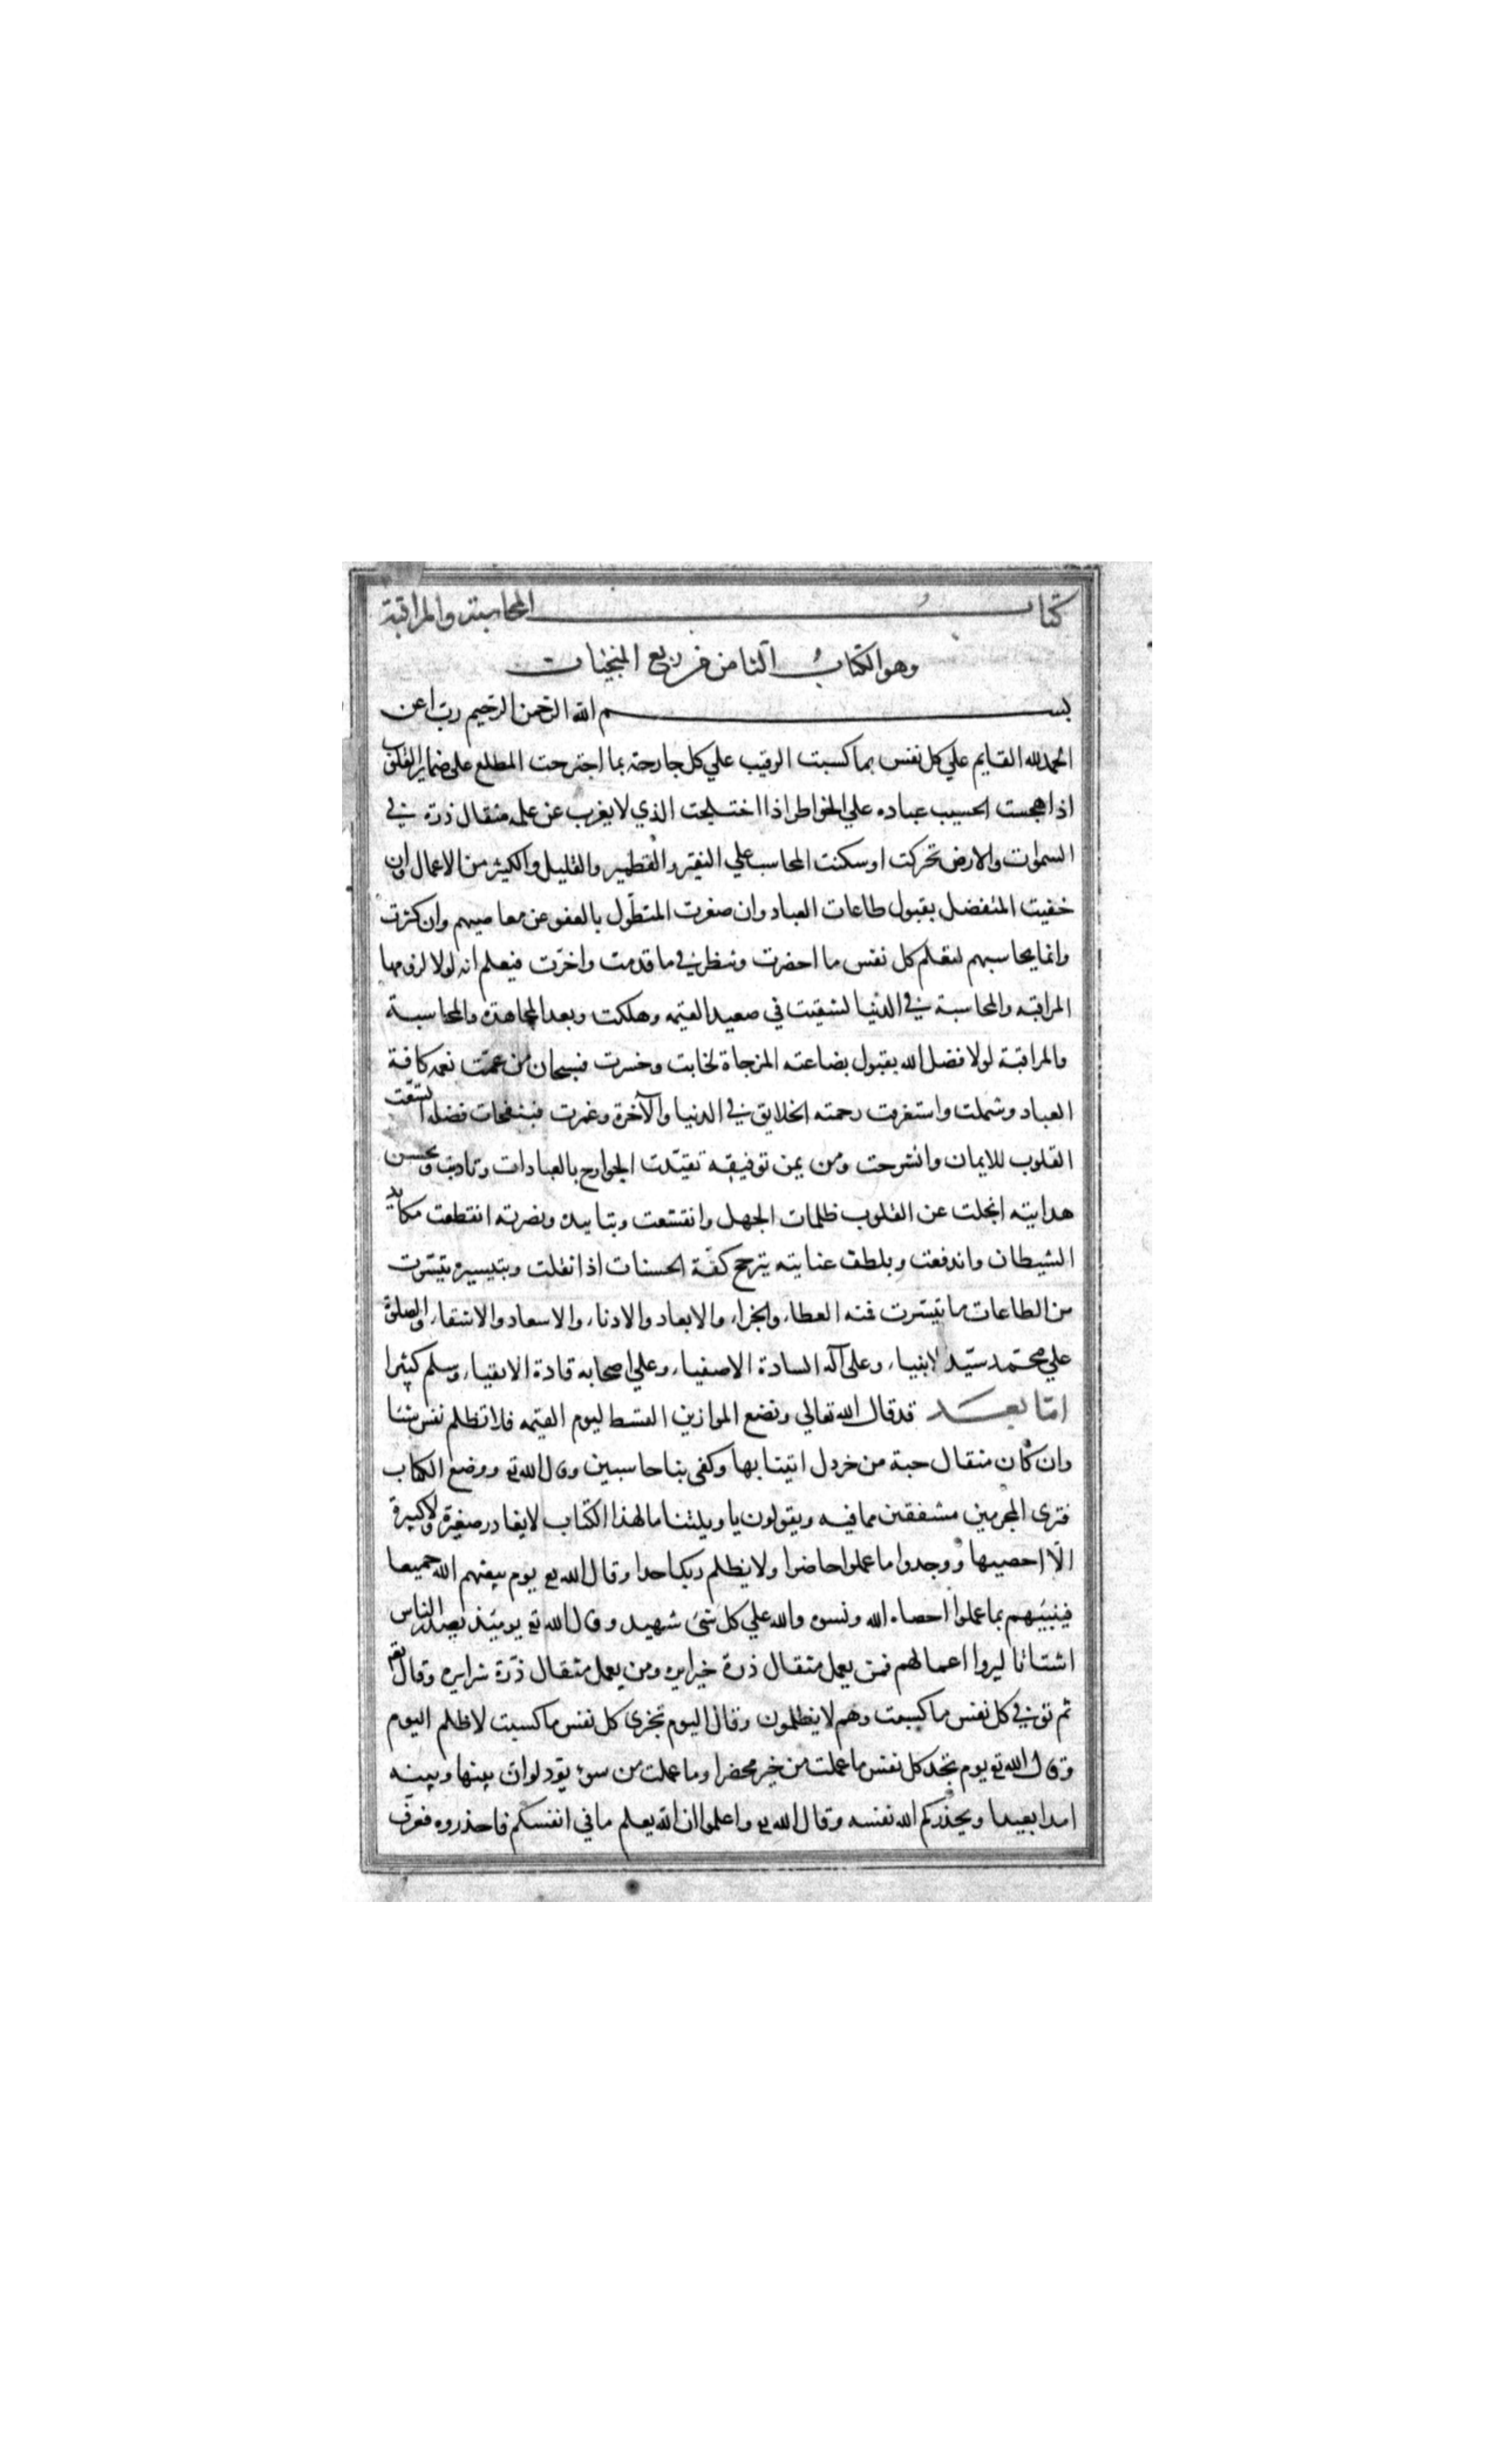 كتاب المحاسبة والمراقبة
وهو الكتاب الثامن من ربع المنجيات
بسم الله الرحمن الرحيم رب اعن
الحمد لله القايم علي كل نفس بما كسبت الرقيب علي كل جارحة بما اجترحت المطلع علي ضماير القلوب
اذا هجست الحسيب عباده علي الخواطر اذا اختلجت الذي لا يغرب عن علمه مثقال ذرة في
السموات والارض تحركت او سكنت المحاسب علي النقير والقطمير والقليل والكثير من الاعمال وان
خفيت المتفضل بقبول طاعات العباد وان صغرت المتطول بالعفو عن معاصيهم وان كثرت
وانما يحاسبهم لتعلم كل نفس ما احضرت وتنظر في ما قدمت واخرت فيعلم انه لولا لزومها
المراقبة والمحاسبة في الدنيا لشقيت في صعيد القيمه وهلكت وبعد المجاهدة والمحاسبة
والمراقبة لولا فضل الله بقبول بضاعته المزجاة لخابت وخسرت فسبحان من عمت نعمه كافة
العباد وشملت واستغرقت رحمته الخلايق في الدنيا والآخرة وغمرت فبنفحات فضله اتسعت
القلوب للايمان وانشرحت ومن يمن توفيقه تقيدت الجوارح بالعبادات وتادبت وبحسن
هدايته انجلت عن القلوب ظلمات الجهل وانقشعت وبتاييده ونصرته انقطعت مكايد
الشيطان واندفعت وبلطف عنايته يترجح كفة الحسنات اذا ثقلت وبتيسيره تيسرت
من الطاعات ما تيسرت فمنه العطاء والجزاء والابعاد والادناء والاسعاد والاشقاء والصلوة
علي محمد سيد الانبياء وعلي آله السادة الاصفياء وعلي اصحابه قادة الاتقياء وسلم كثيرا
اما بعد قد قال الله تعالي ونضع الموازين القسط ليوم القيمه فلا تظلم نفس شيئا
وان كان مثقال حبة من خردل اتينا بها وكفي بنا حاسبين وقال الله تع ووضع الكتاب
فترى المجرمين مشفقين مما فيه ويقولون يا ويلتنا ما لهذا الكتاب لا يغادر صغيرة ولا كبيرة
الا احصيها ووجدوا ما عملوا حاضرا ولا يظلم ربك احدا وقال الله تع يوم يبعثهم الله جميعا
فينبيهم بما عملوا احصاه الله ونسوه والله علي كل شئ شهيد وقال الله تع يومئذ يصدر الناس
اشتاتا ليروا اعمالهم فمن يعمل مثقال ذرة خيرا يره ومن يعمل مثقال ذرة شرا يره وقال تع
ثم توفي كل نفس ما كسبت وهم لا يظلمون وقال اليوم تجزى كل نفس ما كسبت لا ظلم اليوم
وقال الله تع يوم تجد كل نفس ما عملت من خير محضرا وما عملت من سوء تود لو ان بينها وبينه
امدا بعيدا ويحذركم الله نفسه وقال الله تع واعلموا ان الله يعلم ما في انفسكم فاحذروه فعرف